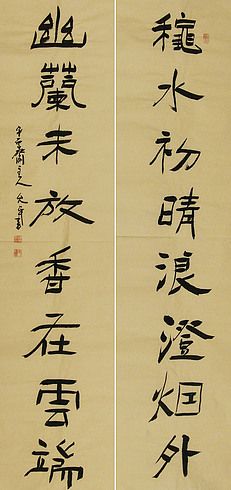 穐水初晴浪澄烟外
幽蘭未放香在雲端